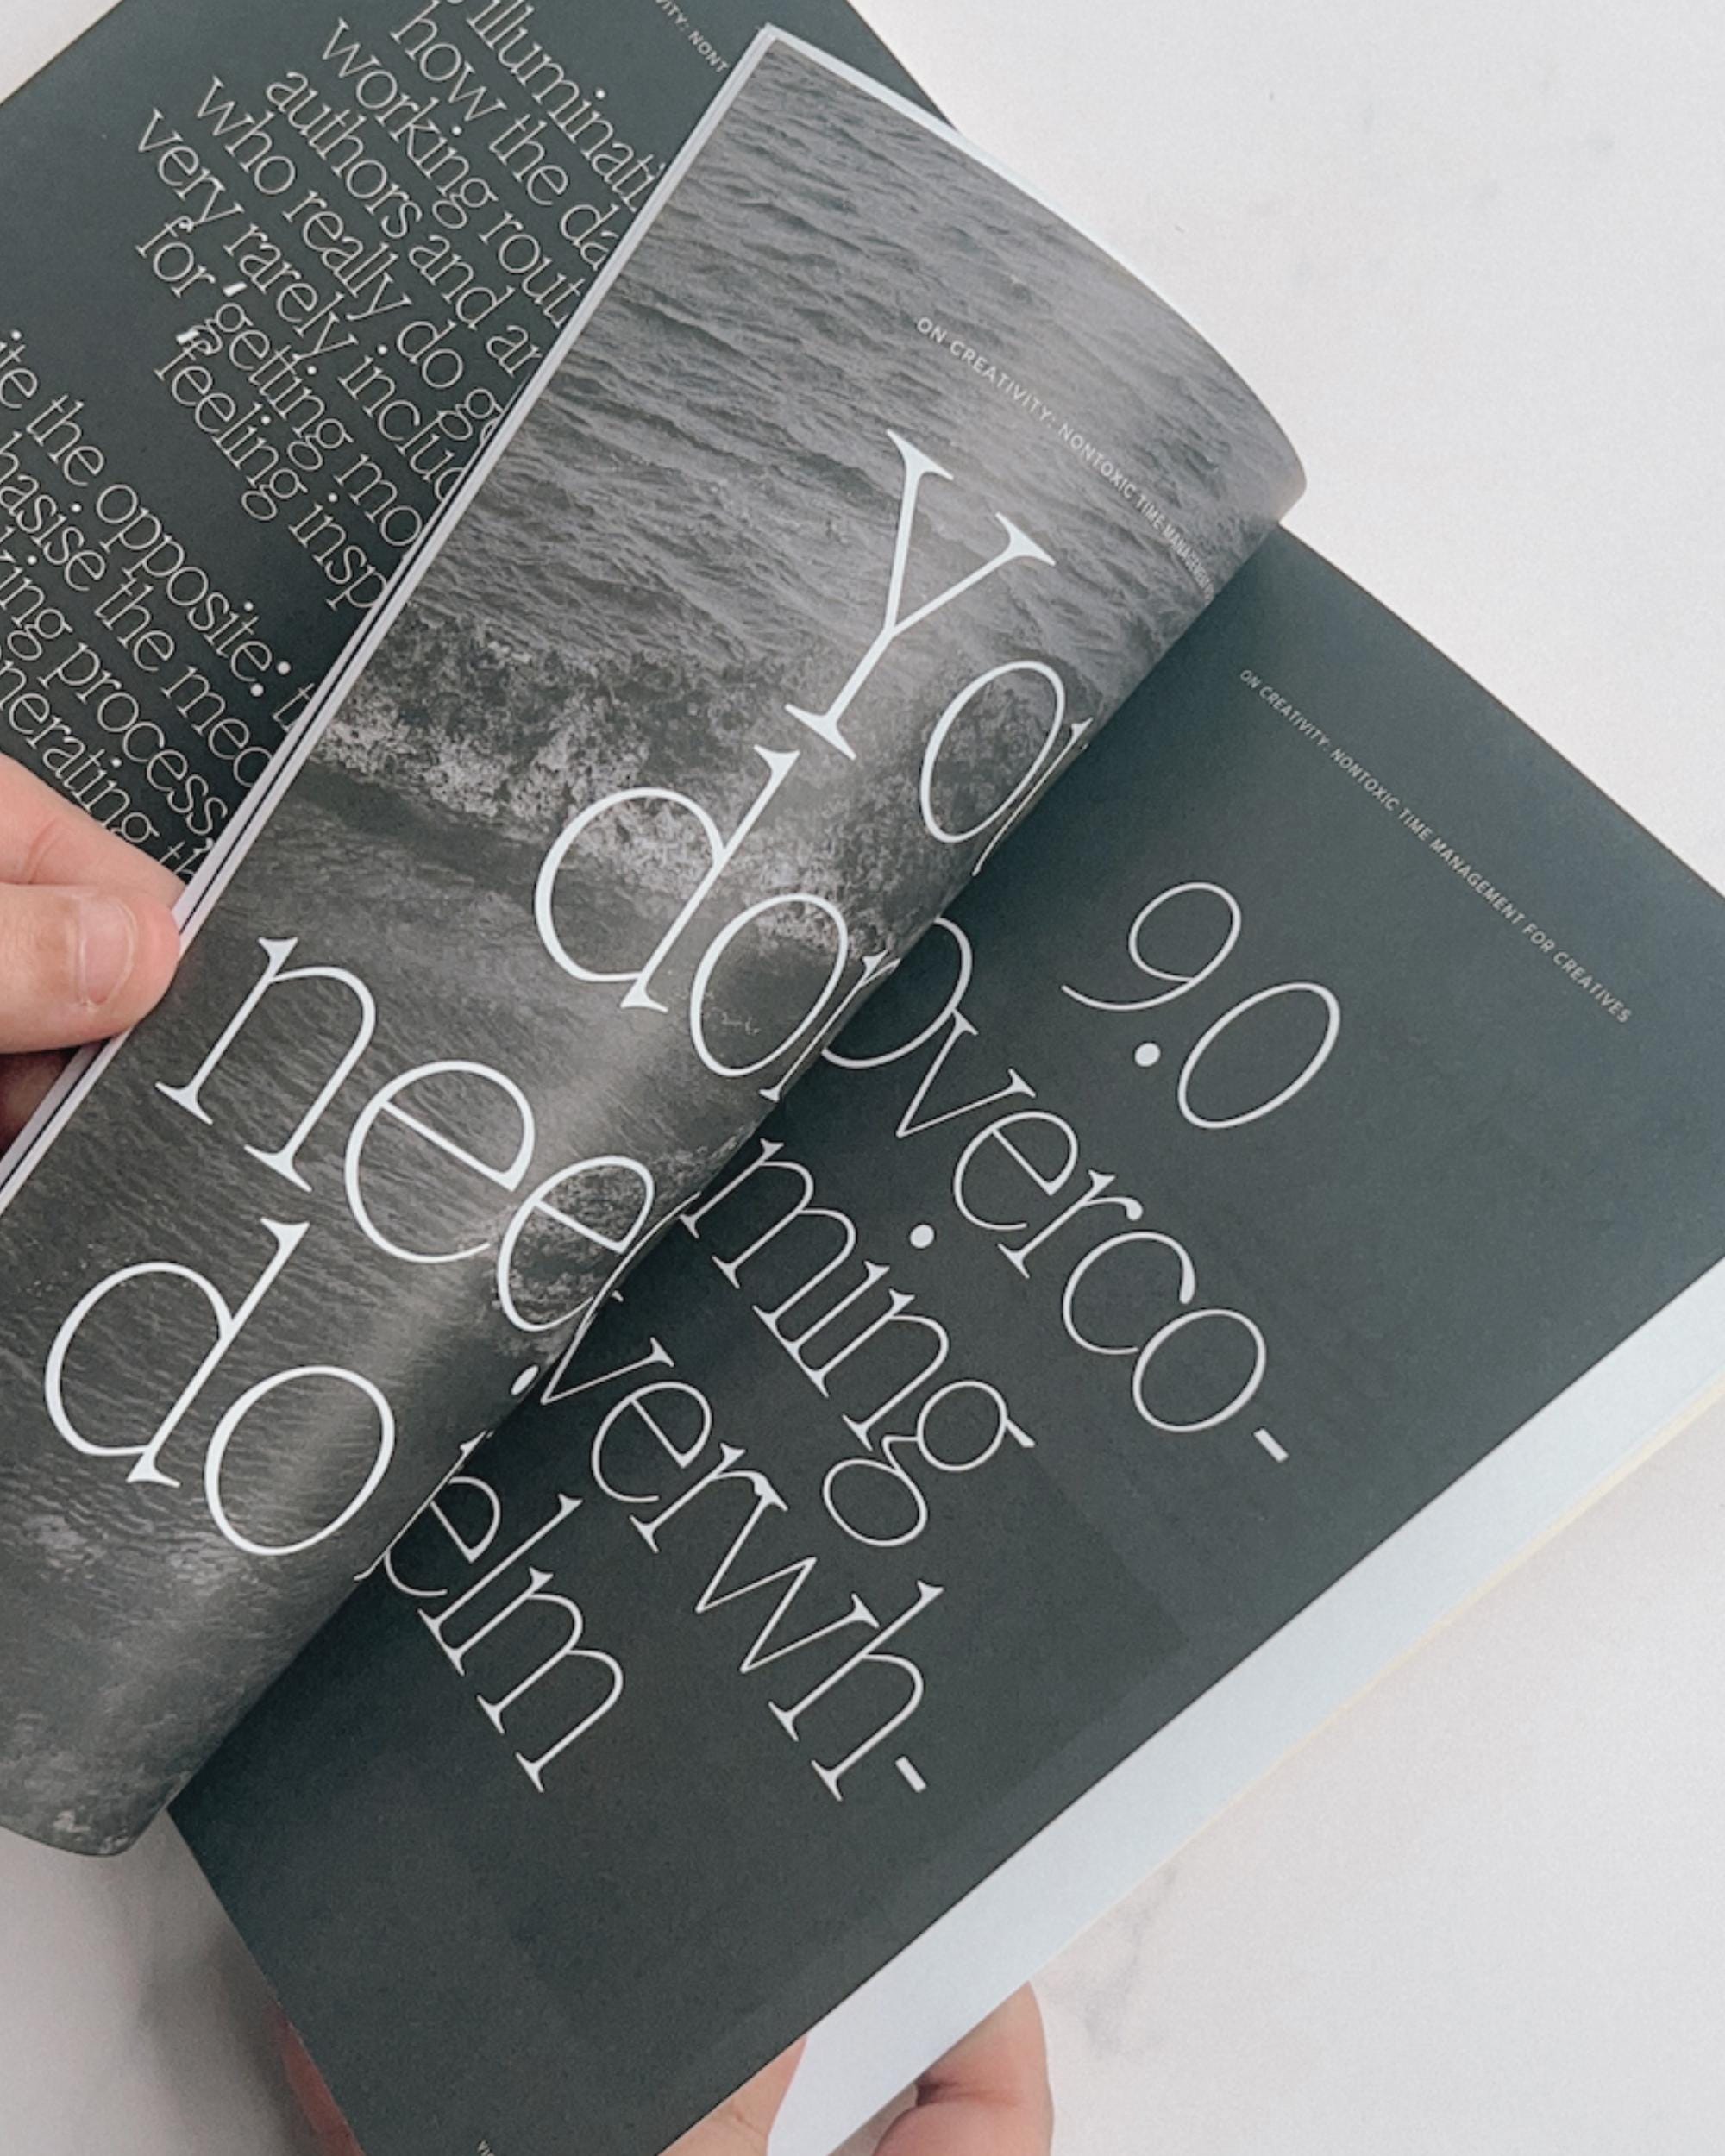 VITY: NONT
illuminati
how the da
working routi
authors and ar
who really do ge
very rarely includ
for 'getting mo
feeling insp
ite the opposite: t
hasise the med
king process
nerating th
ON CREATIVITY: NONTOXIC TIME MANAGEMENT
You
don
nee
do
ON CREATIVITY: NONTOXIC TIME MANAGEMENT FOR CREATIVES
9.0
overco-
ming
verwh-
elm